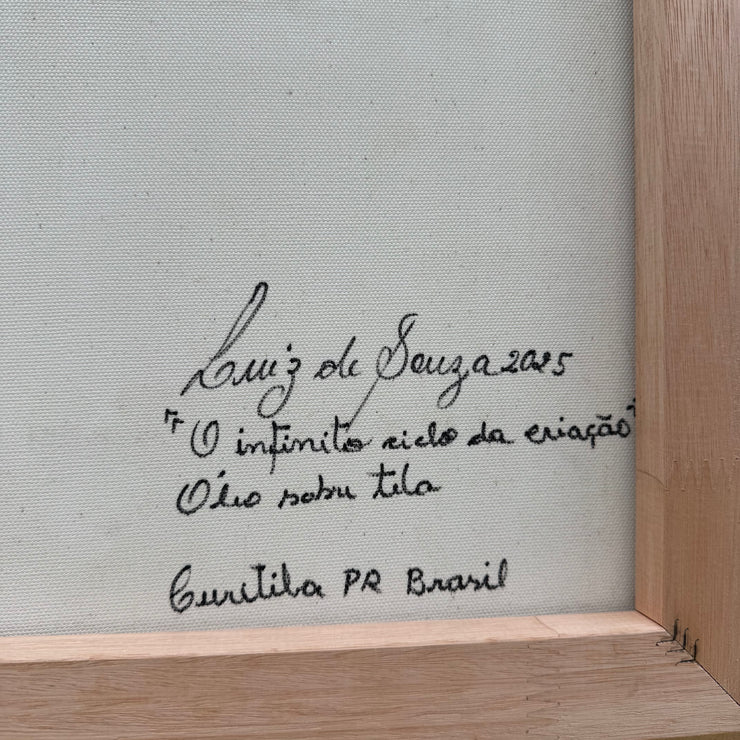 Luiz de Souza 2025
"O infinito ciclo da criação"
Óleo sobre tela
Curitiba PR Brasil